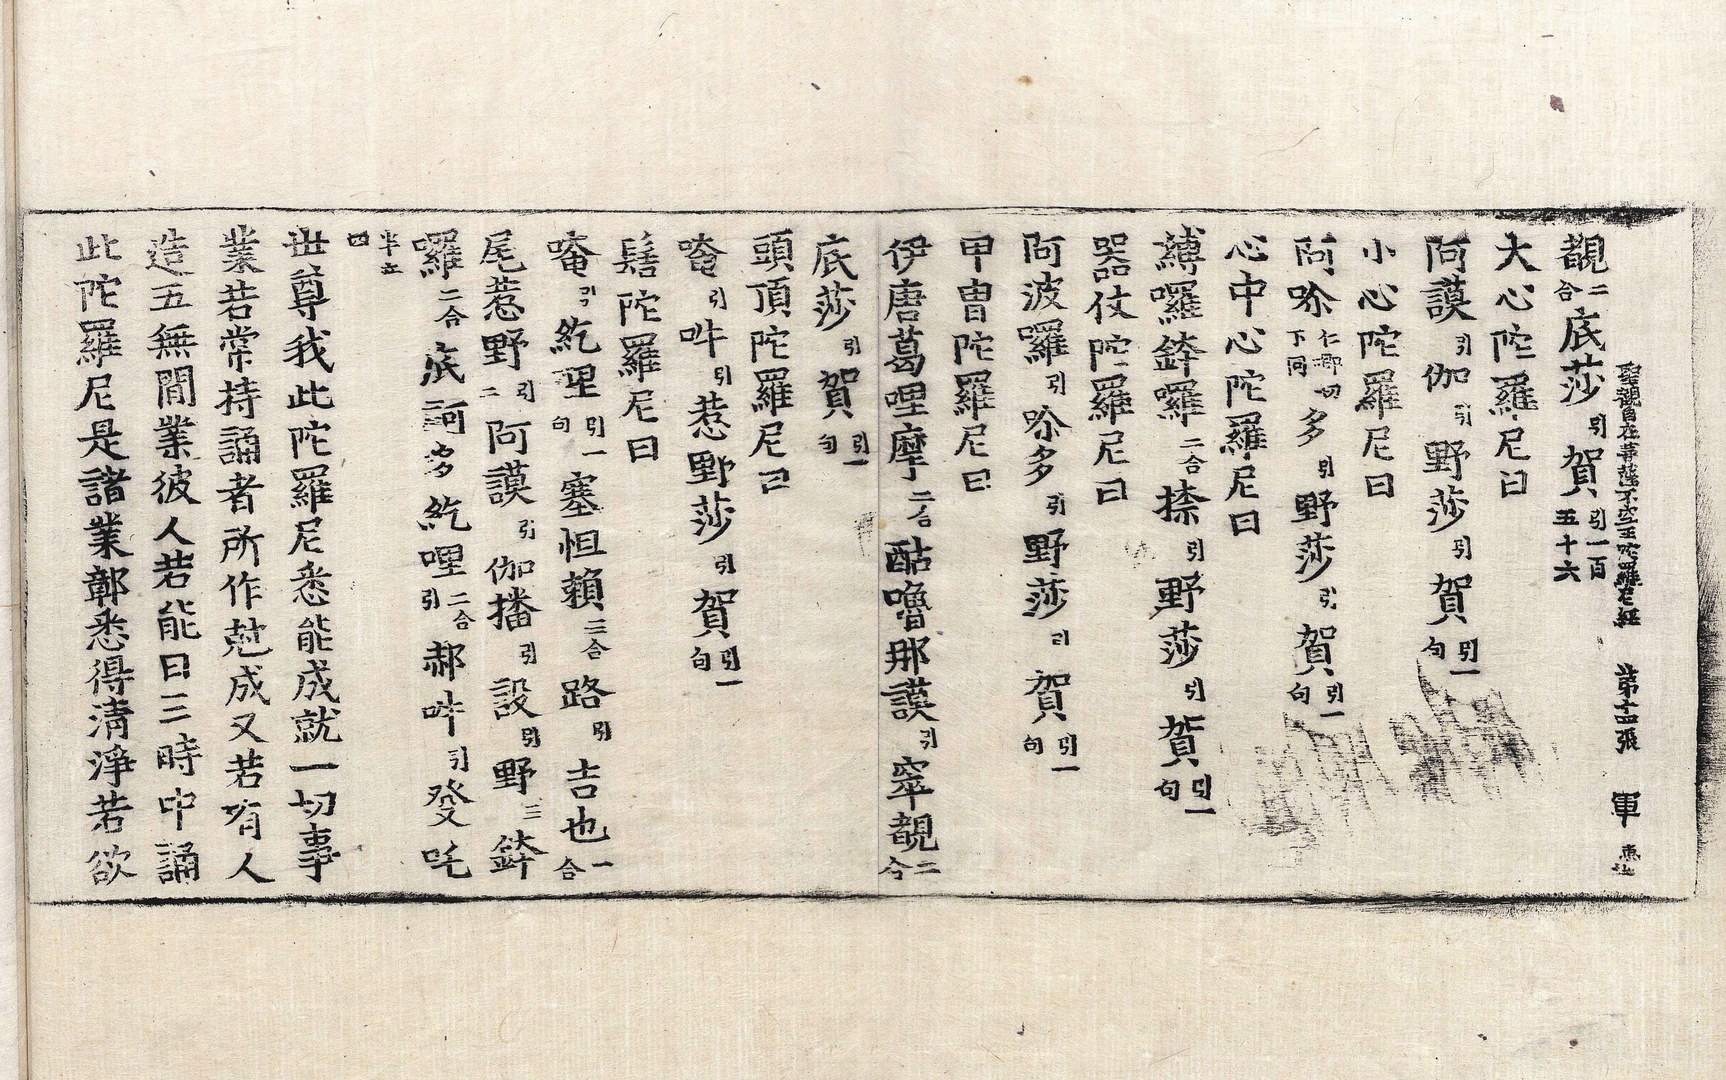 聖觀自在菩薩不空王陀羅尼經 第十四張 軍
覩二合底莎引賀引一百五十六
大心陀羅尼曰
阿謨引伽引野莎引賀引一句
小心陀羅尼曰
阿哆仁鄉切下同多引野莎引賀引一句
心中心陀羅尼曰
縛囉鉢囉二合捺引野莎引賀引一句
器仗陀羅尼曰
阿波囉引哆多引野莎引賀引一句
甲胄陀羅尼曰
伊唐葛哩摩二合酤嚕那謨引窣覩二合
底莎引賀引一句
頭頂陀羅尼曰
唵引吽引惹野莎引賀引一句
髻陀羅尼曰
唵引紇哩引一句塞怛賴三合路引吉也二合
尾惹野引二阿謨引伽播引設引野三鉢
囉二合底訶多紇哩二合引郝吽引發吒
半立四
世尊我此陀羅尼悉能成就一切事
業若常持誦者所作尅成又若有人
造五無間業彼人若能日三時中誦
此陀羅尼是諸業鄣悉得清淨若欲